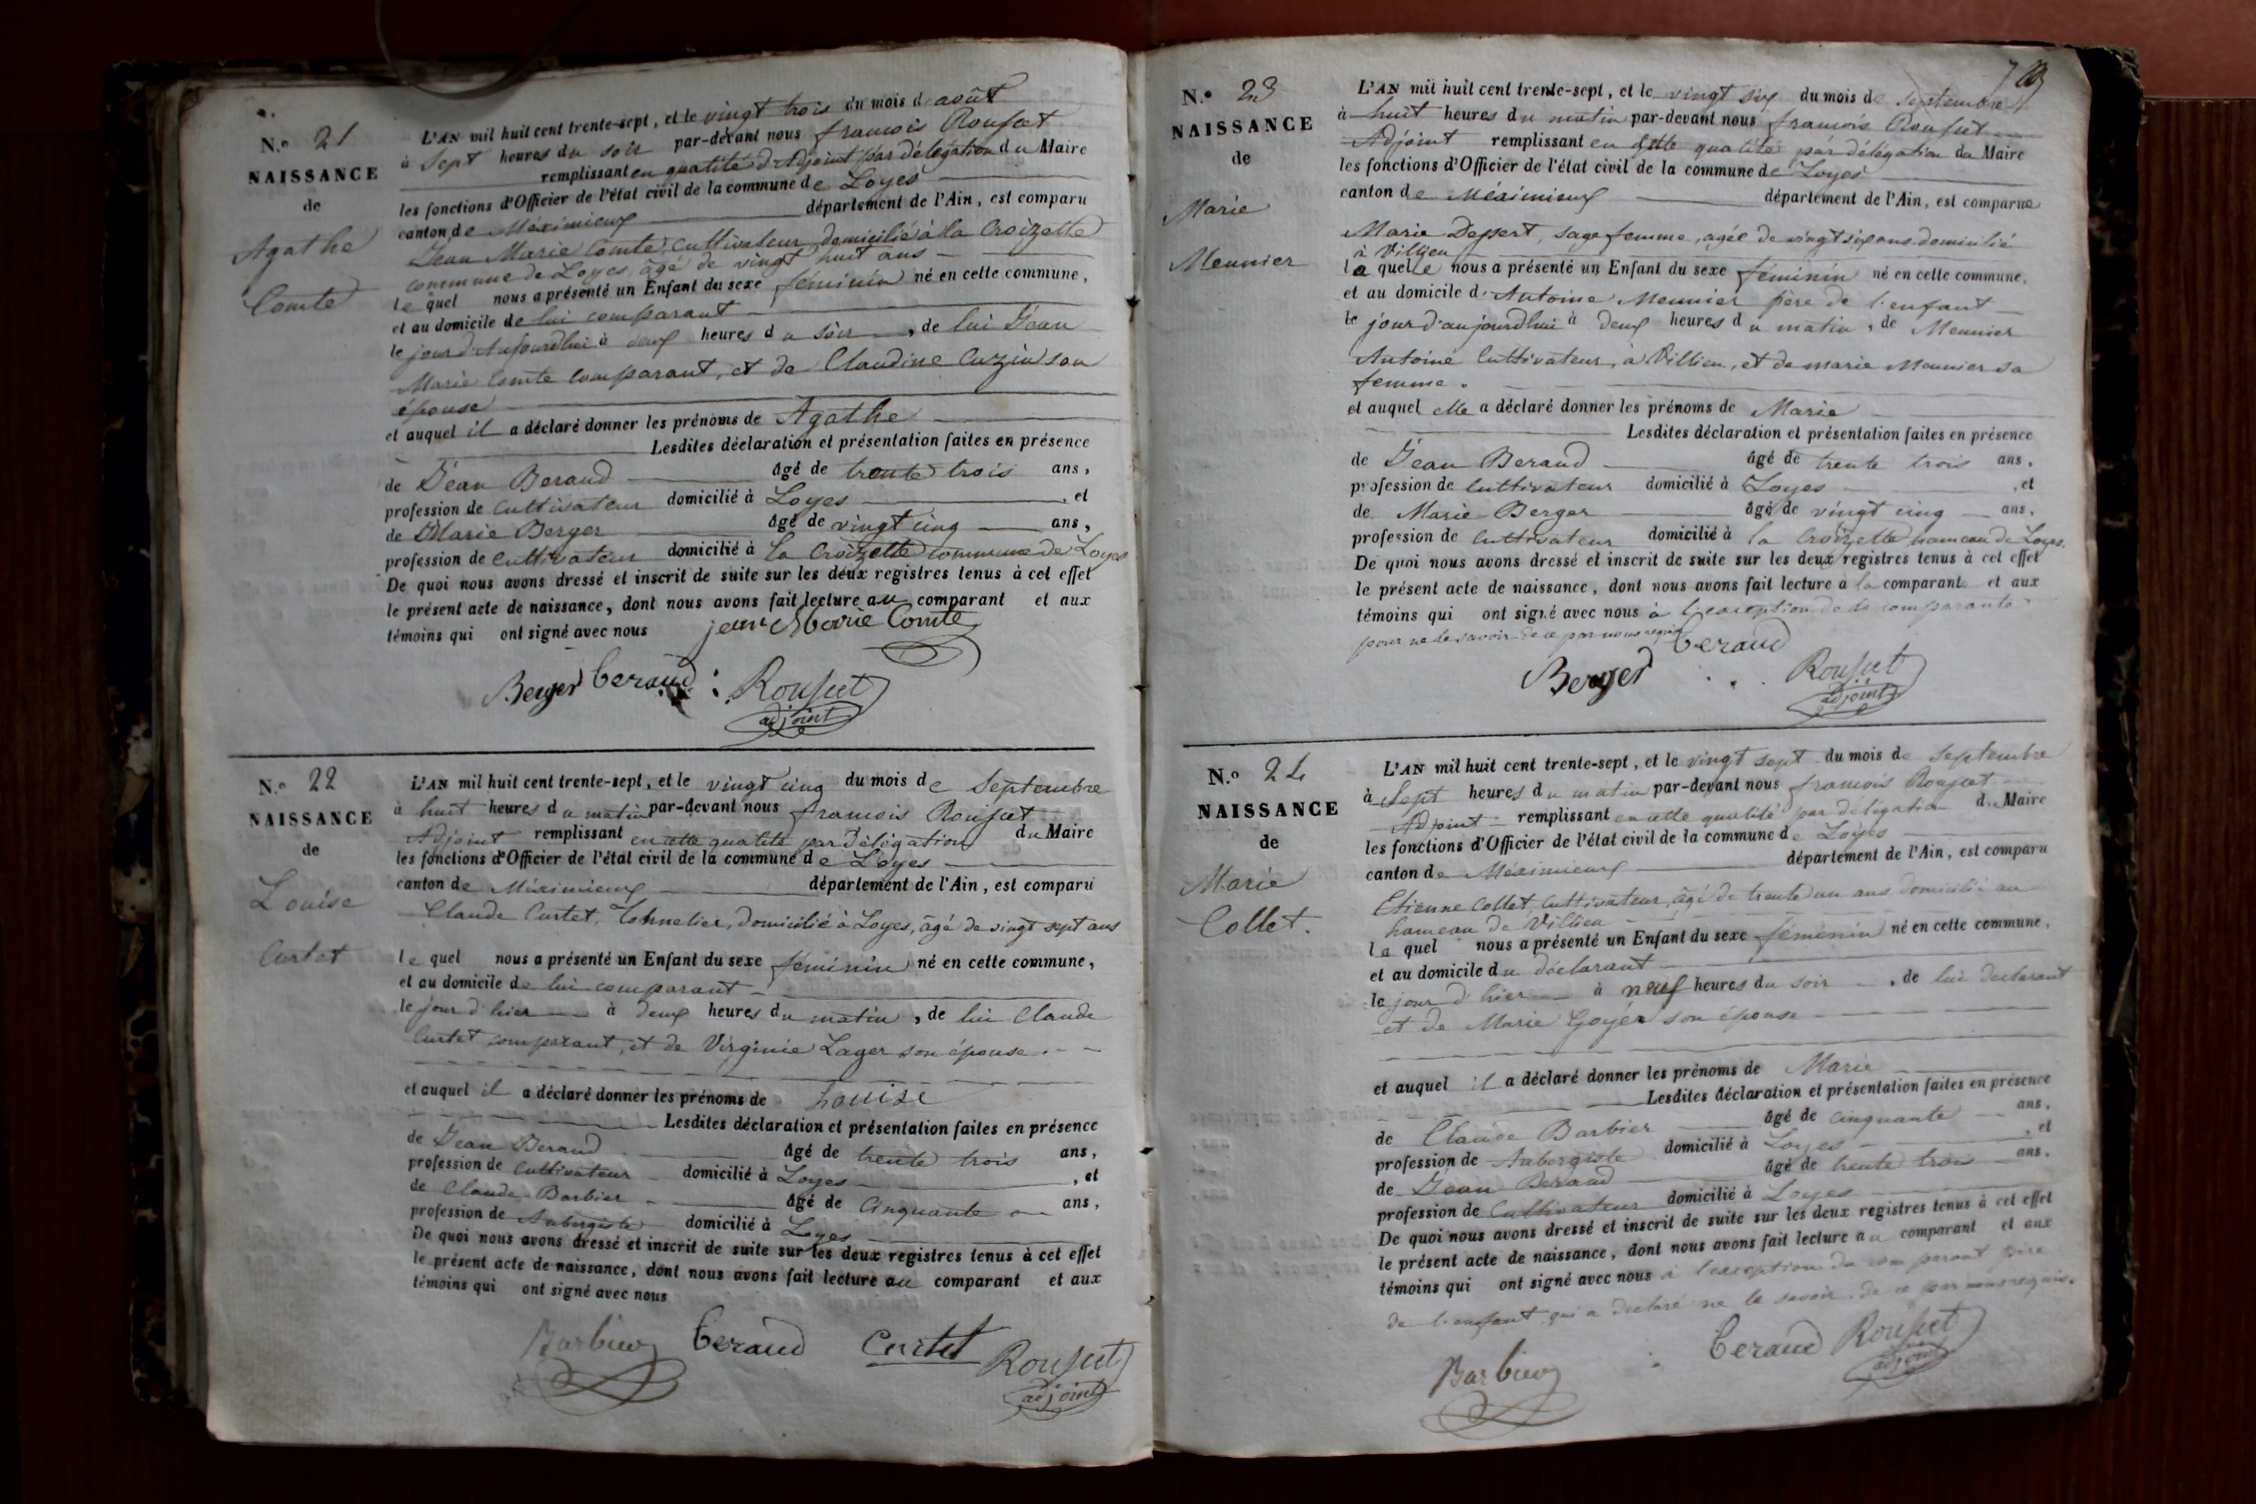 N.° 21
NAISSANCE
de
Agathe
Comte
L'AN mil huit cent trente-sept, et le vingt trois du mois d'août
à Sept heures du soir par-devant nous françois Rousset
remplissant en qualité d'Adjoint par délégation du Maire
les fonctions d'Officier de l'état civil de la commune de Loyes
canton de Méximieux département de l'Ain, est comparu
Jean Marie Comte, cultivateur domicilié à la Croizette
commune de Loyes, âgé de vingt huit ans
lequel nous a présenté un Enfant du sexe féminin né en cette commune,
et au domicile de lui comparant
le jour d'Aujourdhui à deux heures du soir, de lui Jean
Marie Comte comparant, et de Claudine Cuzin son
épouse
et auquel il a déclaré donner les prénoms de Agathe
Lesdites déclaration et présentation faites en présence
de Jean Beraud âgé de trente trois ans,
profession de cultivateur domicilié à Loyes, et
de Marie Berger âgé de vingt cinq ans,
profession de cultivateur domicilié à la Croizette commune de Loyes
De quoi nous avons dressé et inscrit de suite sur les deux registres tenus à cet effet
le présent acte de naissance, dont nous avons fait lecture au comparant et aux
témoins qui ont signé avec nous jean Marie Comte
Berger beraud Rousset
adjoint
N.° 22
NAISSANCE
de
Louise
Curtet
L'AN mil huit cent trente-sept, et le vingt cinq du mois de Septembre
à huit heures du matin par-devant nous françois Rousset
Adjoint remplissant en cette qualité par Délégation du Maire
les fonctions d'Officier de l'état civil de la commune de Loyes
canton de Méximieux département de l'Ain, est comparu
Claude Curtet, Tonnelier, domicilié à Loyes, âgé de vingt sept ans
lequel nous a présenté un Enfant du sexe féminin né en cette commune,
et au domicile de lui comparant
le jour d'hier à deux heures du matin, de lui Claude
Curtet comparant, et de Virginie Lager son épouse.
et auquel il a déclaré donner les prénoms de Louise
Lesdites déclaration et présentation faites en présence
de Jean Beraud âgé de trente trois ans,
profession de cultivateur domicilié à Loyes, et
de Claude Barbier âgé de Cinquante ans,
profession de Aubergiste domicilié à Loyes
De quoi nous avons dressé et inscrit de suite sur les deux registres tenus à cet effet
le présent acte de naissance, dont nous avons fait lecture au comparant et aux
témoins qui ont signé avec nous
Barbier beraud Curtet Rousset
adjoint
N.° 23
NAISSANCE
de
Marie
Meunier
L'AN mil huit cent trente-sept, et le vingt six du mois de septembre
à huit heures du matin par-devant nous françois Rousset
Adjoint remplissant en cette qualité par délégation du Maire
les fonctions d'Officier de l'état civil de la commune de Loyes
canton de Méximieux département de l'Ain, est comparue
Marie Dessert, sage femme, agée de vingt six ans domicilié
à Villieu
laquelle nous a présenté un Enfant du sexe féminin né en cette commune,
et au domicile d'Antoine Meunier père de l'enfant
le jour d'aujourdhui à deux heures du matin, de Meunier
Antoine Cultivateur, à Villieu, et de marie Meunier sa
femme.
et auquel elle a déclaré donner les prénoms de Marie
Lesdites déclaration et présentation faites en présence
de Jean Beraud âgé de trente trois ans,
profession de Cultivateur domicilié à Loyes, et
de Marie Berger âgé de vingt cinq ans,
profession de Cultivateur domicilié à la Croizette hameau de Loyes.
De quoi nous avons dressé et inscrit de suite sur les deux registres tenus à cet effet
le présent acte de naissance, dont nous avons fait lecture à la comparant et aux
témoins qui ont signé avec nous à l'exception de la comparante
pour ne le savoir de ce par nous requis
Berger beraud Rousset
adjoint
N.° 24
NAISSANCE
de
Marie
Collet.
L'AN mil huit cent trente-sept, et le vingt sept du mois de Septembre
à Sept heures du matin par-devant nous françois Rousset
Adjoint remplissant en cette qualité par délégation du Maire
les fonctions d'Officier de l'état civil de la commune de Loyes
canton de Méximieux département de l'Ain, est comparu
Etienne Collet, Cultivateur, âgé de trente un ans domicilié au
hameau de Villieu
laquel nous a présenté un Enfant du sexe féminin né en cette commune,
et au domicile du déclarant
le jour d'hier à neuf heures du soir, de lui déclarant
et de Marie Goyer son épouse
et auquel il a déclaré donner les prénoms de Marie
Lesdites déclaration et présentation faites en présence
de Claude Barbier âgé de cinquante ans,
profession de Aubergiste domicilié à Loyes, et
de Jean Beraud âgé de trente trois ans.
profession de Cultivateur domicilié à Loyes
De quoi nous avons dressé et inscrit de suite sur les deux registres tenus à cet effet
le présent acte de naissance, dont nous avons fait lecture au comparant et aux
témoins qui ont signé avec nous à l'exception du comparant père
de l'enfant qui a declaré ne le savoir de ce par nous requis.
Barbier beraud Rousset
adjoint